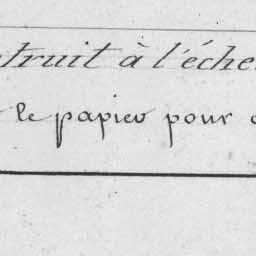 truit à l'éche
le papier pour